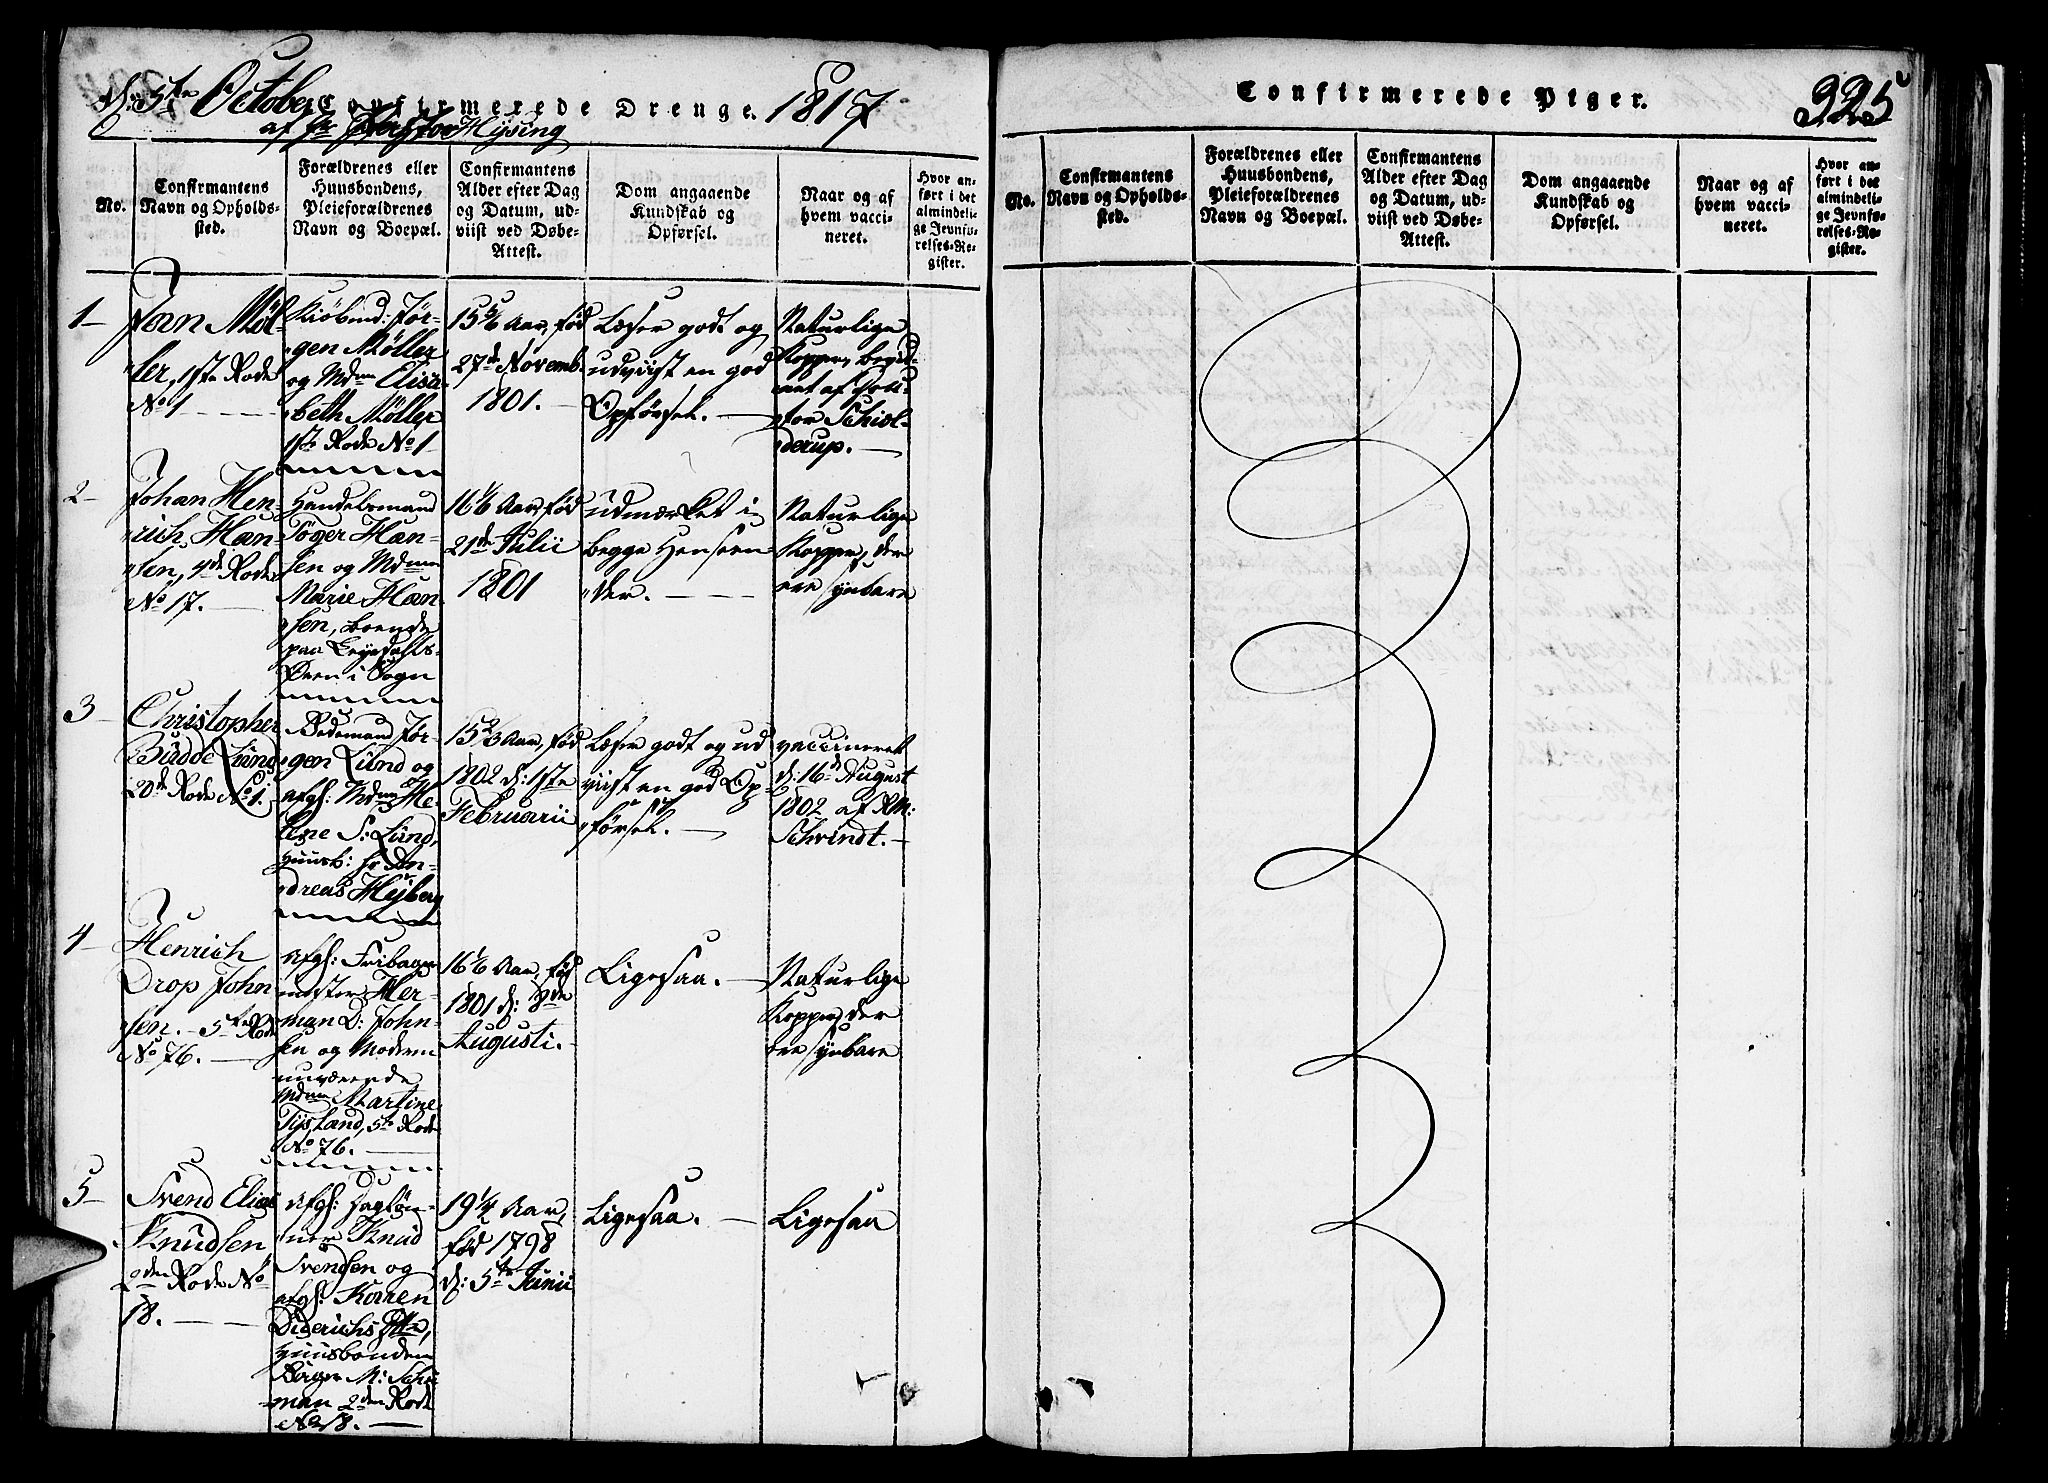 d: 5te October Confirmerede Drenge. 1817
af Hysing
No.
Confirmantens
Navn og Opholds-
sted.
Forældrenes eller
Huusbondens,
Pleieforældrenes
Navn og Boepæl.
Confirmantens
Alder efter Dag
og Datum, ud-
viist ved Døbe-
Attest.
Dom angaaende
Kundskab og
Opførsel.
Naar og af
hvem vacci-
neret.
Hvor an-
ført i det
almindeli-
ge Jevnfø-
relses-Re-
gister.
1
Jan Møl-
ler, 1ste Rode
No 1
Kiøbmd: Jør-
gen Møller
og Mdme Elisa-
beth Møller
1ste Rode No 1
15 5/6 Aar, fød
27de Novemb.
1801.
Læser godt og
udviist en god
Opførsel.
Naturlige
Kopper,
af Doc-
tor Schiol-
derup.
2
Johan Hen-
rich Han-
sen, 4de Rode
No 17.
Handelsmand
Tøger Han-
sen og Mdme
Marie Han-
sen, boende
paa Leyrdahls-
Øren i Sogn
16 1/6 Aar, fød
21de Julii
1801
udmærket i
begge Henseen-
der.
Naturlige
Kopper, der
ere synbare
3
Christopher
Budde Lund
20de Rode No 1.
Bedemand Jør-
gen Lund og
afgl: Mdme He-
lene S: Lund,
Huusb: hr An-
dreas Heiberg
15 2/3 Aar, fød
1802 d: 1ste
Februarii
Læser godt og ud-
viist en god Op-
førsel.
vaccineret
d: 16de August
1802 af RM:
Schvindt.
4
Henrich
Drop John-
sen. 5te Rode
No 76.
Afgl: Fribager-
mester Her-
man D: John-
sen og Moderen
nuværende
Mdme Martine
Tysland, 5te Rode
No 76.
16 1/6 Aar, fød
1801 d:
Augusti.
Ligesaa.
Naturlige
Kopper, der
ere synbare
5
Svend Elias
Knudsen
2den Rode No
18.
Afgl: Dagløn-
ner Knud
Svendsen og
afgl: Karen
Diderichs
Huusbonden
M:
man 2den Rode
No 18.
19 1/4 Aar,
fød 1798
d: 5te Junii
Ligesaa.
Ligesaa
Confirmerede Piger.
325
No.
Confirmantens
Navn og Opholds-
sted.
Forældrenes eller
Huusbondens,
Pleieforældrenes
Navn og Boepæl.
Confirmantens
Alder efter Dag
og Datum, ud-
viist ved Døbe-
Attest.
Dom angaaende
Kundskab og
Opførsel.
Naar og af
hvem vacci-
neret.
Hvor an-
ført i det
almindeli-
ge Jevnfø-
relses-Re-
gister.